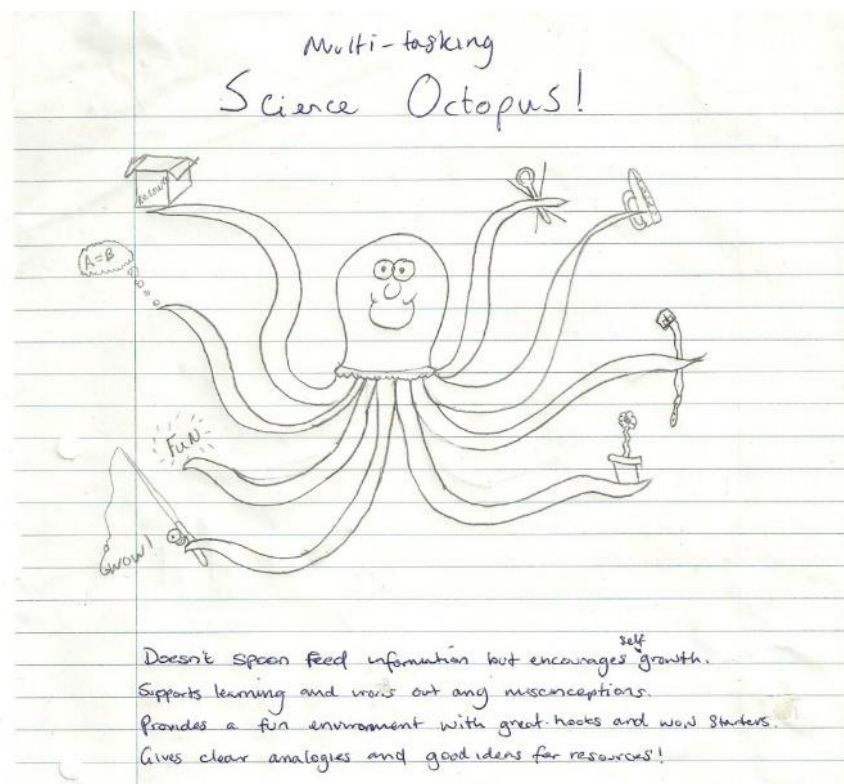 Multi-tasking
Science Octopus!
A=B
FUN
WOW!
Doesn't spoon feed information but encourages self growth.
Supports learning and irons out any misconceptions.
Provides a fun environment with great hooks and wow starters.
Gives clear analogies and good ideas for resources!